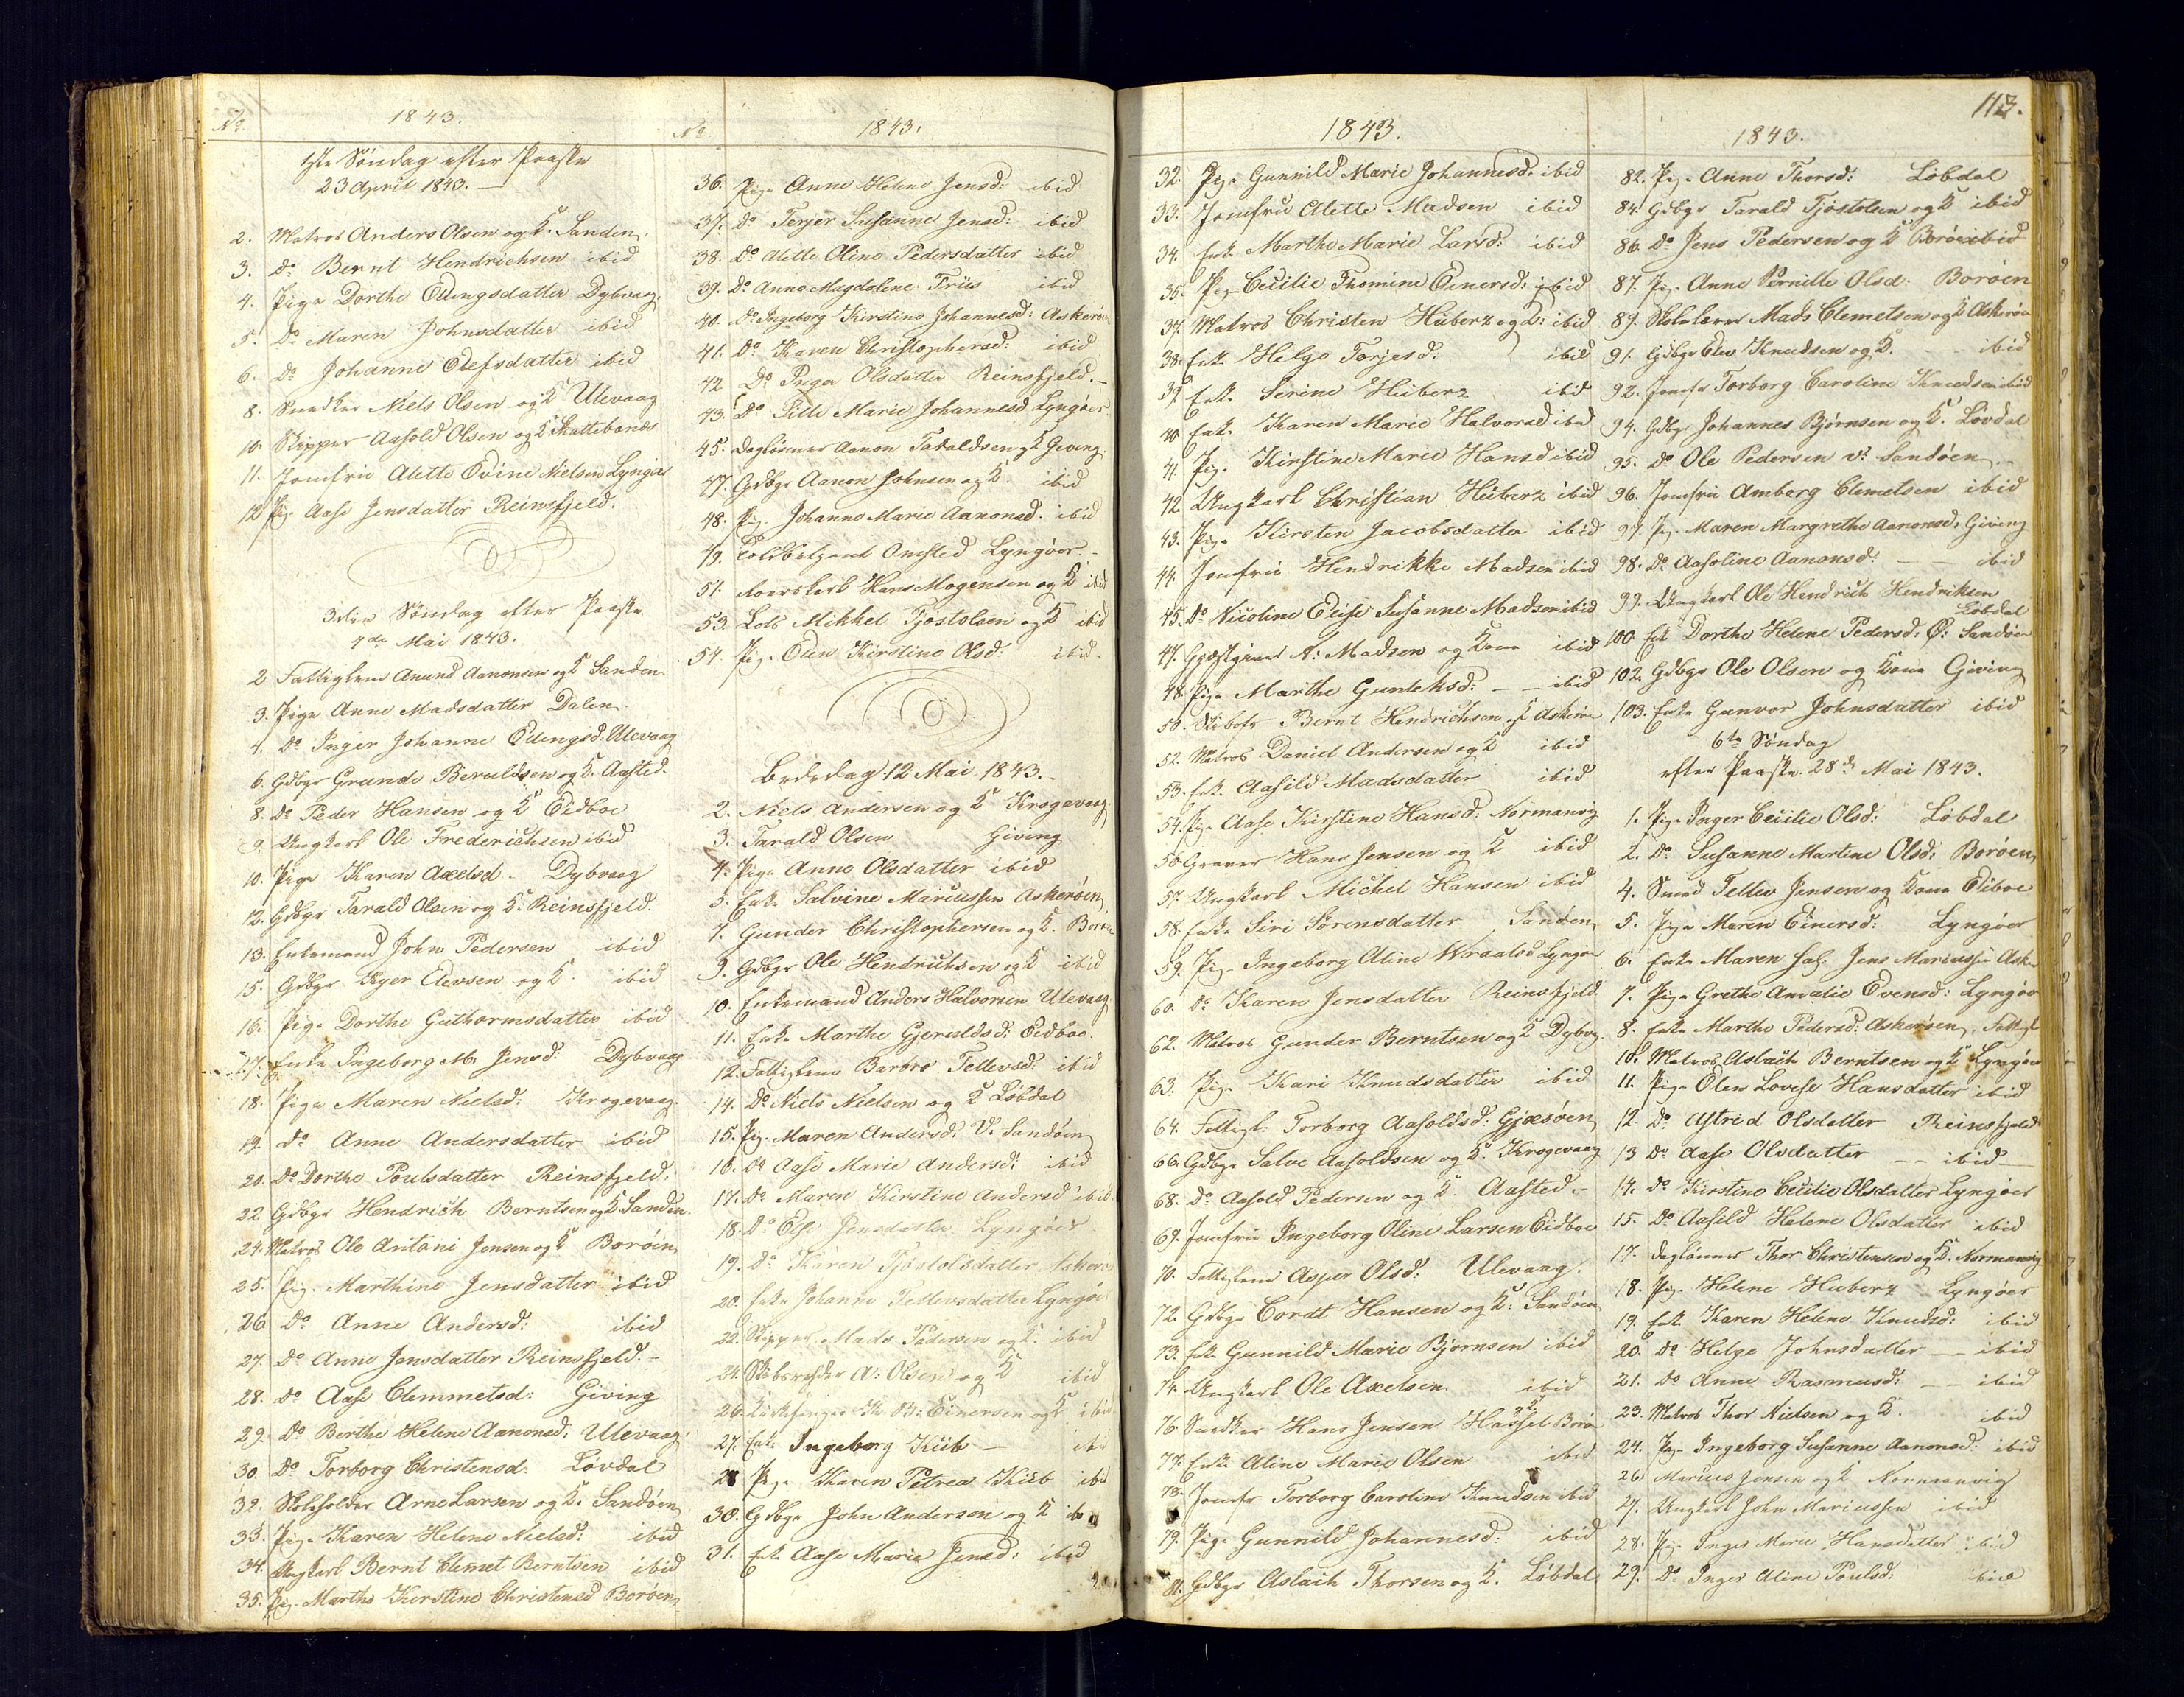 No 1843.
1ste Søndag efter Paaske
23 April 1843.
2. Matros Anders Olsen og K. Sanden.
3. Do Bernt Hendrichsen ibid
4. Pige Dorthe Ellingsdatter Dybvaag.
5. Do Maren Johnsdatter ibid
6. Do Johanne Olefsdatter ibid
8. Snedker Niels Olsen og K Ulevaag
10. Skipper Aasold Olsen og K Skattebonæs
11. Jomfru Alette Evine Nielsen Lyngøer
12 Pig. Aase Jensdatter Reinsfjeld.
3die Søndag efter Paaske
4de Mai 1843.
2 Fattiglem Anund Aanonsen og K Sanden
3. Pige Anne Madsdatter Dalen
4. Do Inger Johanne Ellingsd. Ulevaag
6. Gdbgr Grunde Beruldsen og K. Aasted.
8. Do Peder Hansen og K Eidboe
9. Ungkarl Ole Frederichsen ibid
10. Pige Karen Axelsd. Dybvaag
12. Gdbgr Tarald Olsen og K. Reinsfjeld.
13. Enkemand John Pedersen ibid
15. Gdbgr Kyer Elevsen og K. ibid
16. Pige Dorthe Guthormsdatter ibid
17. Enke Ingeborg M. Jensd: Dybvaag
18. Pige Maren Nielsd: Krogevaag.
19. Do Anne Andersdatter ibid
20. Do Dorthe Poulsdatter Reinsfjeld.
22. Gdbgr Hendrich Berntsen og K Sanden.
24. Matros Ole Antoni Jensen og K Borøen
25. Pig. Marthine Jensdatter ibid
26 Do Anne Andersd: ibid
27. Do Anne Jensdatter Reinsfjeld.
28. Do Aase Clemmetsd: Giving
29. Do Berthe Helene Aanonsd. Ulevaag.
30. Do Torborg Christensd. Løvdal
32. Skoleholder Arne Larsen og K. Sandøen
33. Pige Karen Helene Nielsd: ibid
34. Ungkarl Bernt Clemet Berntsen ibid
35. Pig. Marthe Kirstine Christensd Borøen
No 1843.
36. Pige Anne Helene Jensd: ibid
37. Do Terjer Susanne Jensd: ibid
38. Do Alette Oline Pedersdatter ibid
39. Do Anne Magdalene Friis ibid
40. Do Ingeborg Kirstine Johannesd: Askerøen
41. Do Karen Christophersd: ibid
42 Do Inger Olsdatter Reinsfjeld.
43. Do Pille Marie Johannesd Lyngøer
45. Dagløsner Aanon Taraldsen og K Giving.
47. Gdbgr Aanon Johnsen og K. ibid
48. Pig. Johanne Marie Aanonsd. ibid
49. Toldbetjent Omsted Lyngøer.
51. Roerskarl Hans Mogensen og K ibid
53. Lods Mikkel Tjostolsen og K ibid
54. Pig. Olen Kirstine Olsd: ibid
Bededag 12 Mai 1843.
2. Niels Andersen og K Krogevaag
3. Tarald Olsen Giving
4. Pige Anne Olsdatter ibid
5. Enke Salvine Mariussen Askerøen
7. Gunder Christophersen og K. Borøen
9. Gdbgr Ole Hendrichsen og K ibid
10. Enkemand Anders Halvorsen Ulevaag
11. Enke Marthe Gjeruldsd: Eidboe.
12. Fattiglem Barbro Tellevsd: ibid
14. Do Niels Nielsen og K Løbdal
15. Pig. Maren Andersd: V. Sandøen
16. Do Aase Marie Andersd: ibid
17. Do Maren Kirstine Andersd ibid
18. Do Else Jensdatter Lyngøer
19. Do Karen Tjostolsdatter Askerøen
20. Enke Johanne Tellevsdatter Lyngøer
22. Skipper Mads Pedersen og K. ibid
24. Skibsreder A: Olsen og K ibid
26. Kirkesanger K. B: Einersen og K ibid
27. Enke Ingeborg Kiib — ibi
28 Pige Karen Petrea Kiib ibid
30. Gdbgr John Anderson og K ibi
31. Enk. Aase Marie Jensd: ibid
1843.
32. Pige Gunnild Marie Johannesd. ibid
33. Jomfru Alette Madsen ibid
34. Enk. Marthe Marie Larsd: ibid
35. Pige Cecilie Thomine Einersd: ibid
37. Matros Christen Hüberz og K: ibid
38. Enk. Helge Terjesd. ibid
39 Enk. Serine Hüberz ibid
40 Enk. Karen Marie Halvorsd ibid
41. Pig. Kirstine Marie Hansd ibid
42 Ungkarl Christian Hüberz ibid
43. Pige Kirsten Jacobsdatter ibid
44. Jomfru Hendrikke Madsen ibid
45. Do Nicoline Elise Susanne Madsen ibid
47. Gjæstgiver A: Madsen og Kone ibid
48. Pige Marthe Gunleksd: — ibid
50. Bernt Hendrichsen og K Askerøen
52. Matros Daniel Andersen og K ibid
53. Enk. Aasild Madsdatter ibid
54. Pige Aase Kirstine Hansd: Normanvig
56. Graver Hans Jensen og K ibid
57. Ungkarl Michel Hansen ibid
58. Enke Siri Sørensdatter Sanden
59. Pig. Ingeborg Aline Wraalsd Lyngør
60. Do Karen Jensdatter Reinsfjeld
62. Matros Gunder Berntsen og K Dybvg
63. Pig. Kari Knudsdatter ibid
64. Fattigl. Torborg Aasoldsd: Gjæsøen
66. Gdbgr Salve Aasoldsen og K. Krogevaag
68. Do Aasold Pedersen og K. Aasted.
69. Jomfru Ingeborg Oline Larsen Eidboe
70. Fattiglem Asper Olsd: Ulevaag.
72. Gdbgr Cordt Hansen og K: Sandøen
73. Enk. Gunnild Marie Bjørnsen ibid
74. Ungkarl Ole Axelsen ibid
76. Snedker Hans Jensen Hassel og K Borø
77. Enk. Aline Marie Olsen ibid
78. Jomfr Torborg Caroline Knudsen ibid
79. Pige Gunnild Johannesd: ibid
81. Gdbgr Aslach Thorsen og K. Løbdal
113.
1843.
82. Pige Anne Thorsd: Løbdal
84. Gdbgr Tarald Tjostolsen og K ibid
86. Do Jens Pedersen og K Borøen ibid
87. Pig. Anne Pernille Olsd: Borøen
89. Skolelærer Mads Clemetsen og K Askerøen
91. Gdbgr Elev Knudsen og K. — ibid
92. Jomfr Torborg Caroline Knudsen ibid
94. Gdbgr Johannes Bjørnsen og K. Løvdal
95. Do Ole Pedersen V: Sandøen
96. Jomfru Amberg Clemetsen ibid
97. Pg. Maren Margrethe Aanonsd: Giving
98. Do Aasoline Aanonsd: — ibid
99. Ungkarl Ole Hendrich Hendriksen
Løbdal
100. Enk Dorthe Helene Pedersd. Ø: Sandøen
102. Gdbgr Ole Olsen og Kone Giving
103. Enke Gunvor Johnsdatter ibid
6te Søndag
efter Paaske 28de Mai 1843.
1. Pige Inger Cecilie Olsd: Løbdal
2. Do Susanne Martine Olsd: Borøen
4. Smed Tellev Jensen og Kone Eiboe
5. Pige Maren Einersd: Lyngøer
6. Enke Maren sal. Jens Mariussen Ask
7. Pige Grethe Amalie Evensd: Lyngør
8. Enke Marthe Pedersd: Askerøen, Fattigl
10. Matros Aslach Berntsen og K Lyngøer
11. Pige Olen Lovise Hansdatter ibid
12. Do Astrid Olsdatter Reinsfjeld
13 Do Aase Olsdatter — ibid —
14. Do Kirstine Cecilie Olsdatter Lyngøer
15. Do Aasild Helene Olsdatter ibid
17. Dagløsner Thor Christensen og K. Normanvig
18. Pig. Helene Hüberz Lyngøer
19. Enk. Karen Helene Knudsd: ibid
20. Do Helge Johnsdatter — ibid
21. Do Anne Rasmusd: — ibid
23. Matros Thor Nielsen og K. ibid
24. Pige Ingeborg Susanne Aanonsd: ibid
26. Marius Jensen og K Normanvig
27. Ungkarl John Mariussen ibid
28. Pig. Inger Marie Hansdatter ibid
29. Do Inger Aline Poulsd: ibid